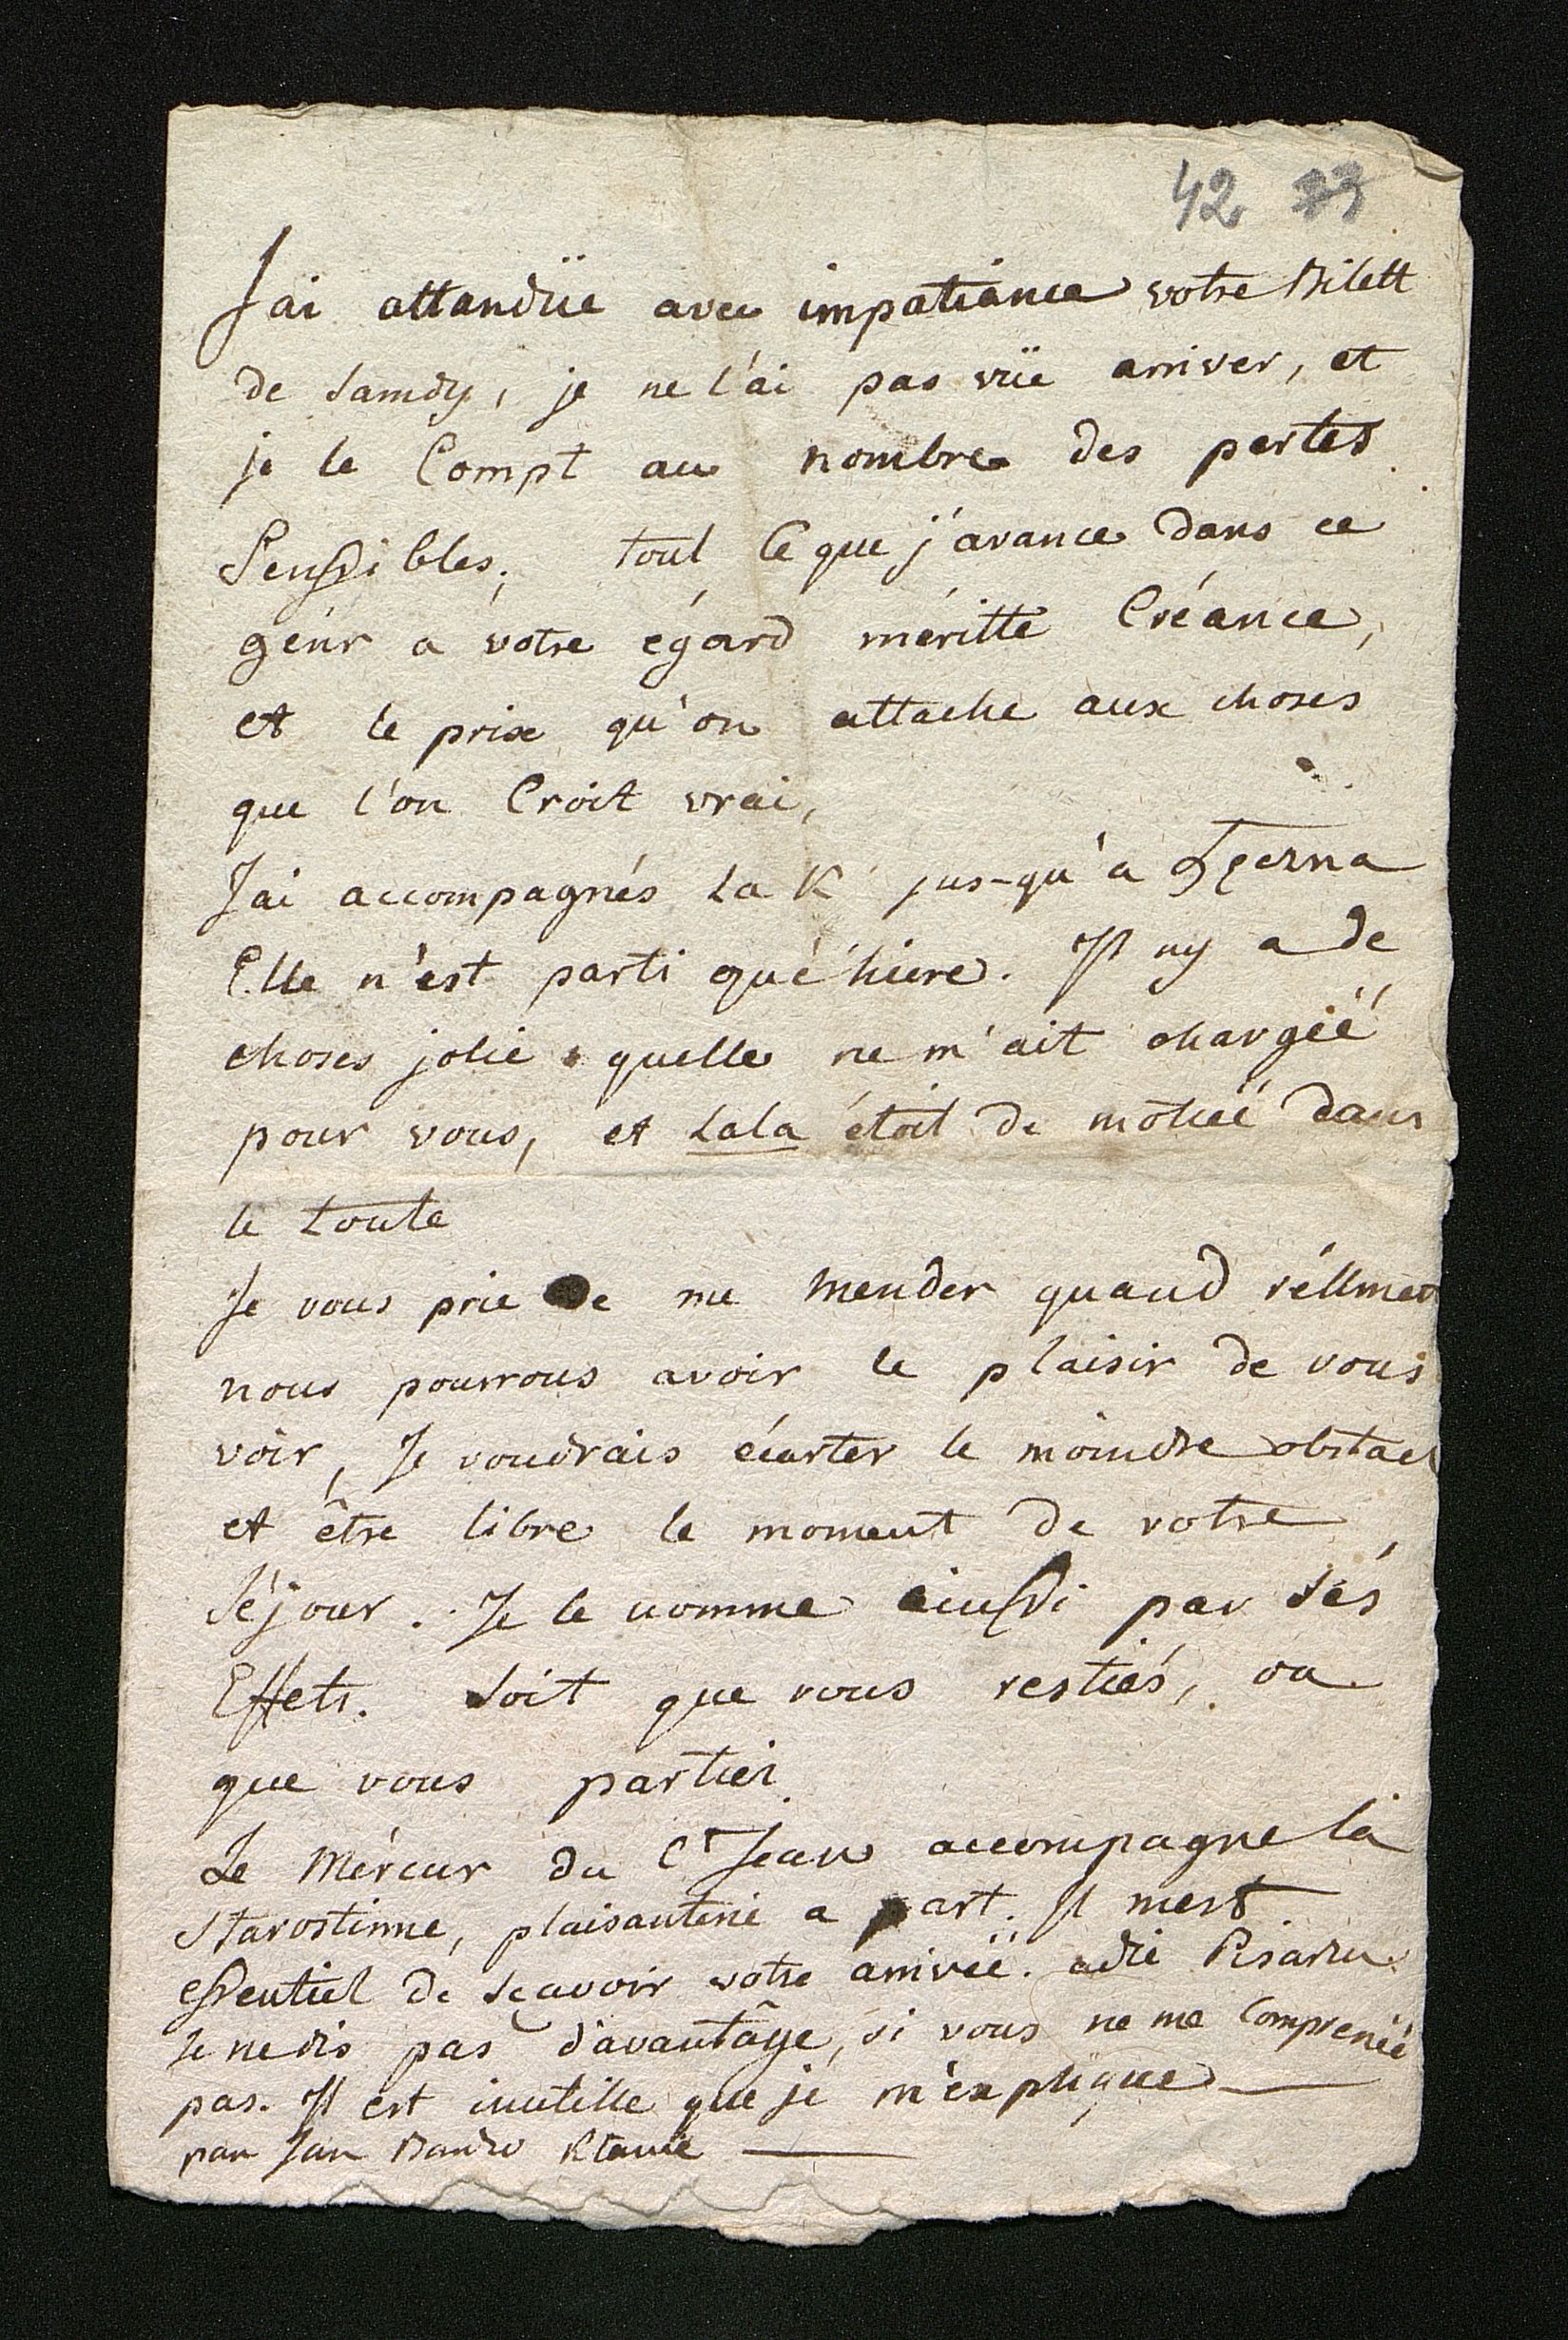 42 33
Jai attandüe avec impatiance votre Bilett
de Samdy, je ne l'ai pas vüe arriver, et
je le Compt au nombre des pertes
Senssibles, tout ce que j'avance dans ce
génr a votre égard méritte Créance,
et le prix qu'on attache aux choses
que l'on Croit vrai,
Jai accompagnés La K jus-qu'a
Elle n'est parti qué hiere. Il ny a de
choses jolie quelle ne m'ait chargéë
pour vous, et Lala étoit de moitiéé dans
le toute
Je vous prie de me mender quand réllmet
nous pourrons avoir le plaisir de vous
voir, Je voudrais écarter le moindre obstacl
et être libre le moment de votre
Séjour. Je le nomme ainssi par sés
Effets. Soit que vous restiés, ou
que vous partiez
Le Mércur du Cт Jean accompagne la
Starostinne, plaisanterie a part. Il mest
essentiel de sçavoir votre arrivéë. adié
Je ne dis pas d'avantâge, si vous ne me Comprenéé
pas. Il est inutille que je m'éxplique
pan Jan Bardzo Klania